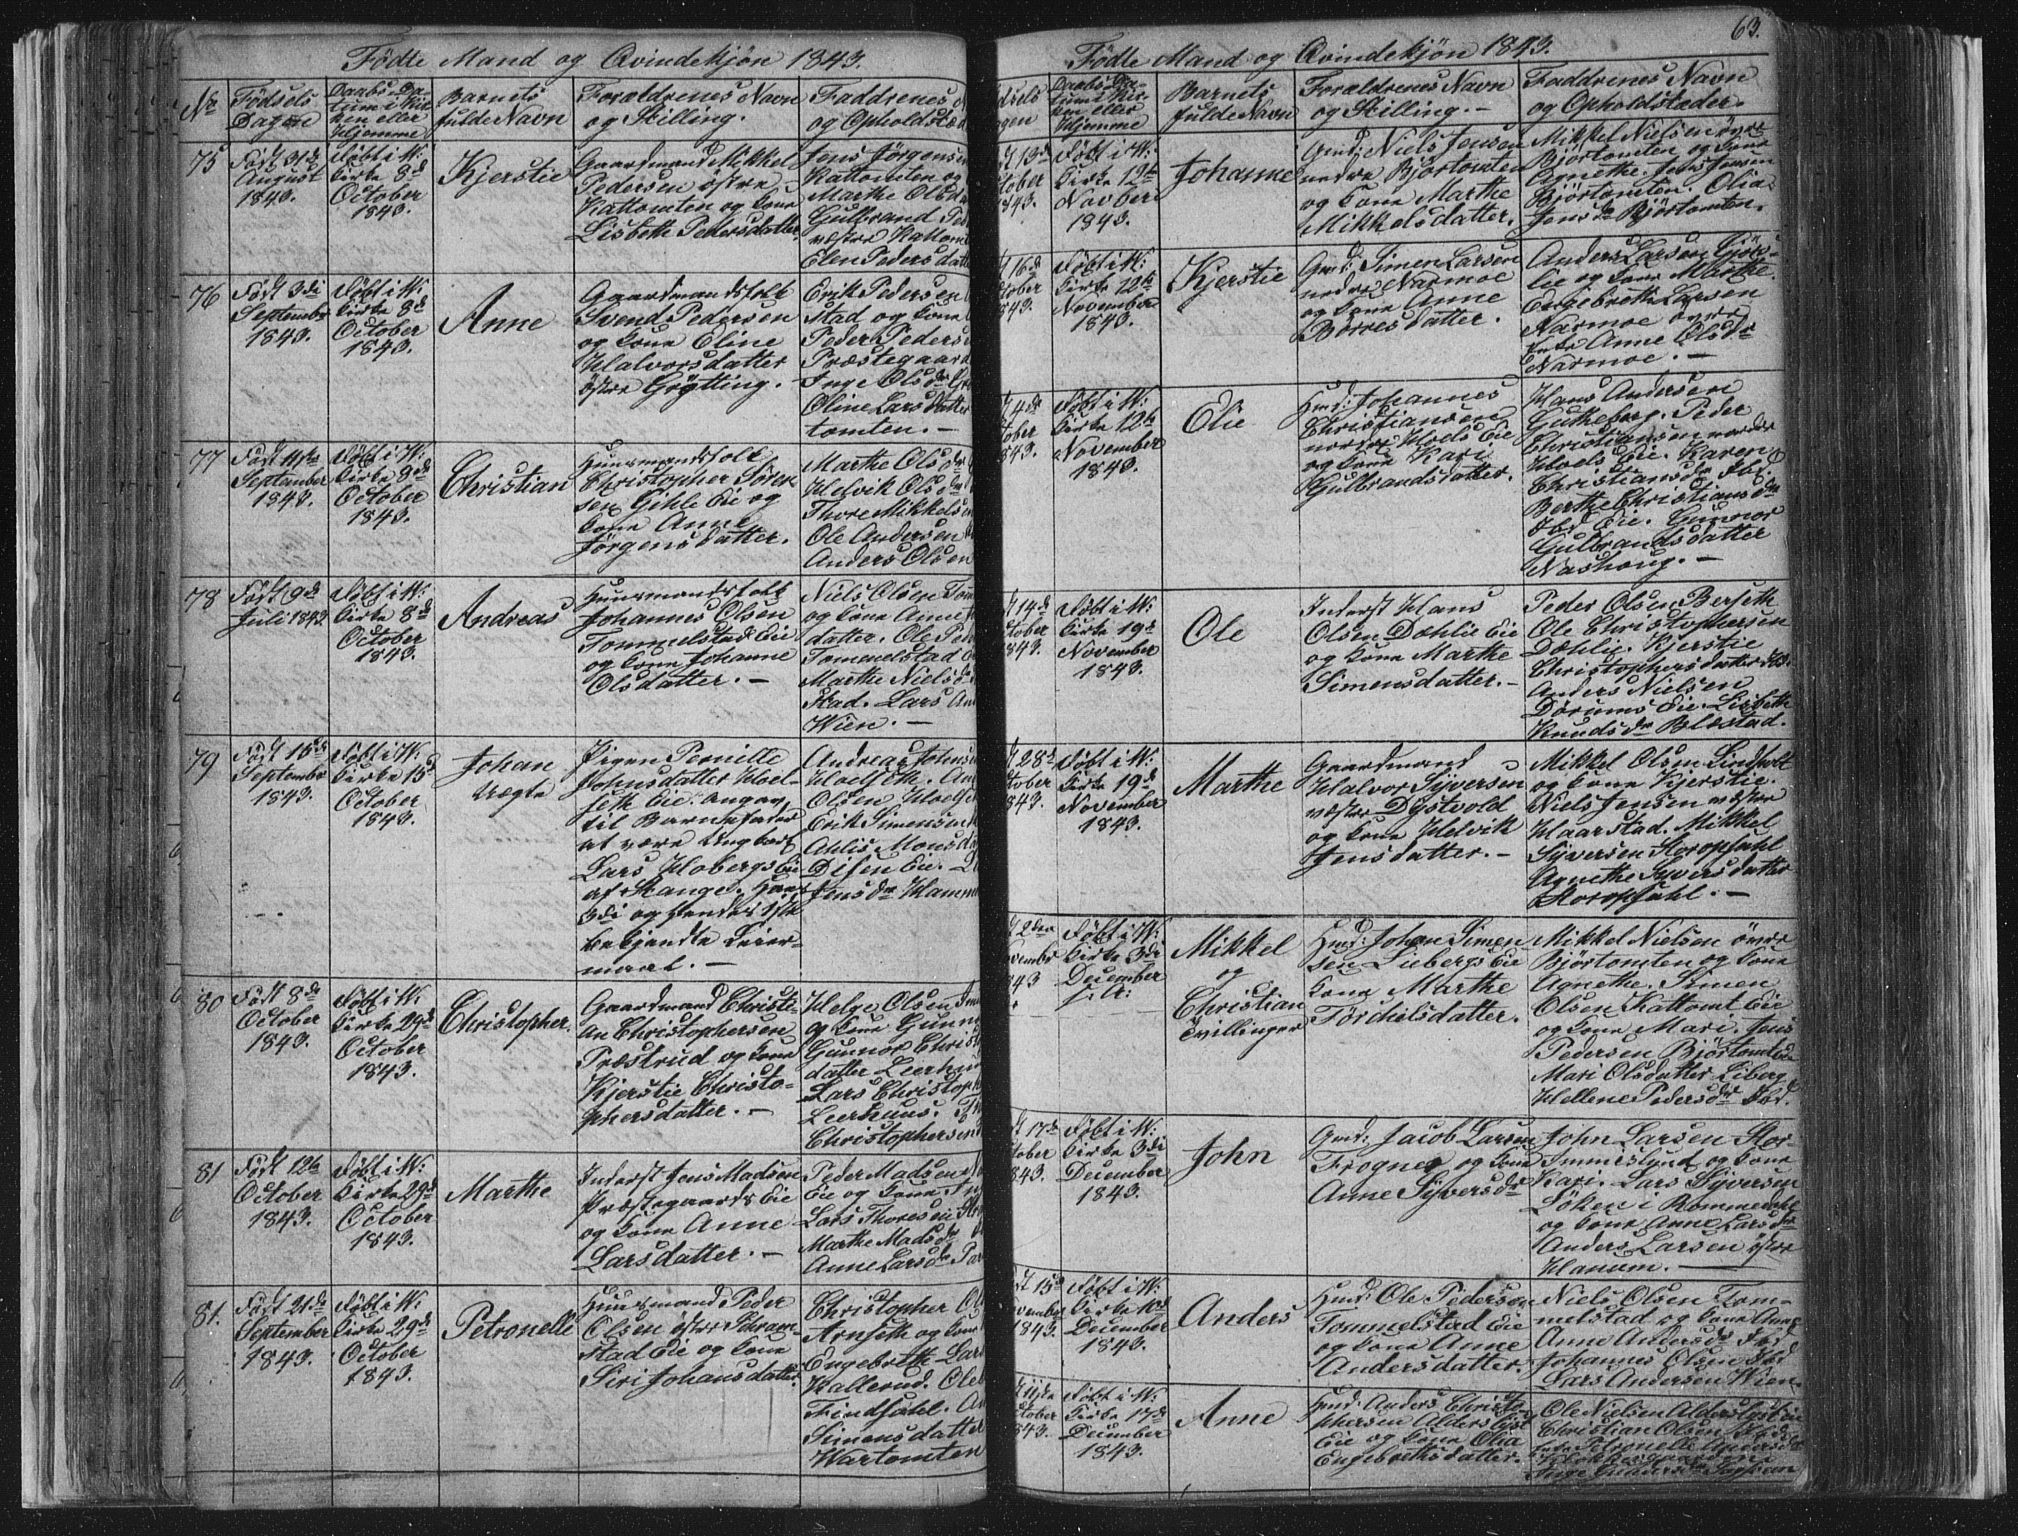 Födte Mand og Qvindekjön 1843.
No
Födsels Dagene
Daabs-Datum i Kirken eller Hjemme
Barnets fulde Navn
Forældrenes Navn og Stilling.
Faddrenes
og Opholdstæd
75
Födt 31te
August
1843.
Döbt i V:
Kirke 8de
October
1843.
Kjerstie
Gaardmand Mikkel
Pedersen östre
Kattomten og Kone
Lisbeth Pedersdatter.
Jens Jörgensen
Kattomten og
Marthe Olsda
Gulbrand Ped
væstre Kattom
Elen Pedersdatt
76
Födt 3di
September
1843.
Döbt i V:
Kirke 8de
October
1843.
Anne
Gaardmandsfolk
Svend Pedersen
og Kone Eline
Halvorsdatter
östre Grötting.
Erik Pedersen
stad og Kone
Peder Peders
Præstegaard
Inge Olsdr
Oline Larsdatter
tomten.
77
Födt 11te
September
1843.
Döbt i V:
Kirke 8de
October
1843.
Christian
Huusmandsfolk
Christopher Sören-
sen Gihle Eie og
Kone Anne
Jörgensdatter.
Marthe Olsdr
Helvik Olsdr
Thore Mikkels
Ole Andersen
Anders Olsen
78
Födt 9de
Juli 1843
Döbt i V:
Kirke 8de
October
1843.
Andreas
Huusmandsfolk
Johannes Olsen
Tommelstad Eie
og Kone Johanne
Olsdatter.
Niels Olsen Tom
og Kone Anne
datter. Ole Ped
Tommelstad
Marthe Niels
stad. Lars An
Wien.
79
Födt 15de
September
1843.
Döbt i V:
Kirke 15de
October
1843.
Johan
Uægte
Pigen Pernille
Johnsdatter Hoel-
seth Eie. Angav
til Barnefader
at være Ungkarl
Lars Hobergs Eie
af Stange. Hans
3di og Hendes 1ste
bekjendte Leier-
maal.
Andreas Johns
Hoelseth. An
Olsen Hoelse
Erik Simensen
Ahlis Monsd
Disen Eie.
Jensdr Hamme
80
Födt 8de
October
1843.
Döbt i V:
Kirke 29de
October
1843.
Christopher.
Gaardmand Christi-
an Christophersen
Præstrud og Kone
Kjerstie Christo-
phersdatter.
Helge Olsen
og Kone Gunn
Gunnor Christ
datter Leerhuu
Lars Christoph
Leerhuus.
Christophersen
81
Födt 12te
October
1843.
Döbt i V:
Kirke 29de
October
1843.
Marthe
Inderst Jens Madsen
Præstegaards Eie
og Kone Anne
Larsdatter.
Peder Madsen
Eie og Kone
Lars Thoresen
Marthe Madsdr
Anne Larsdr
81.
Födt 21de
September
1843.
Döbt i V:
Kirke 29de
October
1843.
Petronelle
Huusmand Peder
Olsen
stad Eie og Kone
Siri Johansdatter.
Christopher Ol
Arnseth og Kone
Engebreth Lars
Kallerud. Ole
Findsahl.
Simensdatter
Wartomten
63.
Födte Mand og Qvindekjön 1843.
ödsels
agen
Daabs-Datum i Kirken eller Hjemme
Barnets fulde Navn
Forældrenes Navn og Stilling.
Faddrenes Navn og Opholdstæder.
13de
ctober
1843.
Döbt i V:
Kirke 12te
November
1843.
Johanne
Gmd: Niels Jensen
nedre Björtomten
og Kone Marthe
Mikkelsdatter.
Mikkel Nielsen övre
Björtomten og Kone
Agnethe. Jens Jensen
Björtomten. Olia
Jensdr Björtomten.
16de
ctober
1843.
Döbt i V:
Kirke 12te
November
1843.
Kjerstie
Gmd: Simen Larsen
nedre Narmoe
og Kone Anne
Börresdatter.
Anders Larsen
lie og Kone Marthe.
Engebreth Larsen
Narmoe övre
Enke Anne Olsdr
Narmoe.
4de
tober
1843.
Döbt i V:
Kirke 12te
November
1843.
Elie
Hmd: Johannes
Christiansen
nordre Hoels Eie
og Kone Kari
Gulbrandsdatter.
Hans Andersen
Gutheberg. Peder
Christiansen nordre
Hoels Eie. Karen
Christiansdr Ibd.
Berthe Christiansdr
Ibd Eie. Gunnor
Gulbrandsdatter
Nashoug.
14de
ctober
1843.
Döbt i V:
Kirke 19de
November
1843.
Ole
Inderst Hans
Olsen Dæhlie Eie
og Kone Marthe
Simensdatter.
Peder Olsen Berseth
Ole Christophersen
Dæhlie. Kjerstie
Christophersdatter Ibd.
Anders Nielsen
Dörums Eie. Lisbeth
Knudsdr Blæstad.
28de
ctober
1843.
Döbt i V:
Kirke 19de
November
1843.
Marthe
Gaardmand
Halvor Syversen
væstre Dystvold
og Kone Helvik
Jensdatter.
Mikkel Olsen Lindholt
og Kone Kjerstie.
Niels Jensen væstre
Haarstad. Mikkel
Syversen Koropsahl
Agnethe Syversdatter
Koropsahl.
2den
ovember
1843
Döbt i V:
Kirke 3di
December
s: A:
Mikkel
og
Christian
Tvillinger
Hmd: Johan Simen-
sen Liebergs Eie
Kone Marthe
Törchelsdatter.
Mikkel Nielsen övre
Björtomten og Kone
Agnethe. Simen
Olsen Kattomt Eie
og Kone Mari. Jens
Pedersen Björtomt Eie
Mari Olsdatter Liberg
Hellene Pedersdr Ibd.
17de
ctober
1843.
Döbt i V:
Kirke 3di
December
1843.
John
Gmd: Jacob Larsen
Frogner og Kone
Anne Syversdr
John Larsen Stor-
Immeslund og Kone
Kari. Lars Syversen
Löken i Rommedahl
og Kone Anne Larsdr
Anders Larsen östre
Hanum.
15de
ovember
1843.
Döbt i V:
Kirke 10de
December
1843.
Anders
Hmd: Ole Pedersen
Tommelstad Eie
og Kone Anne
Andersdatter.
Niels Olsen Tom-
melstad og Kone Anne
Anne Andersdr Ibd
Johannes Olsen Ibd
Lars Andersen Wien.
11te
ctober
1843.
Döbt i V:
Kirke 17de
December
1843.
Anne
Hmd: Anders Christo-
phersen Alderslyst
Eie og Kone Olia
Engebrethsdatter.
Ole Nielsen Alderslyst Eie
Christian Olsen Ibd
Enke Petronelle Andersdr